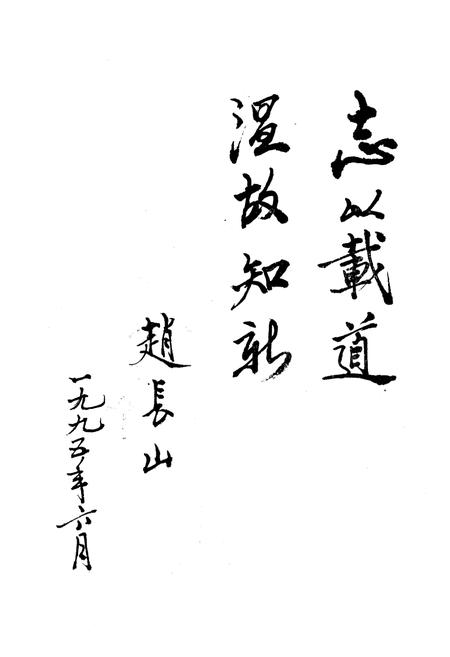 志以載道
溫故知新
趙長山
一九九五年六月